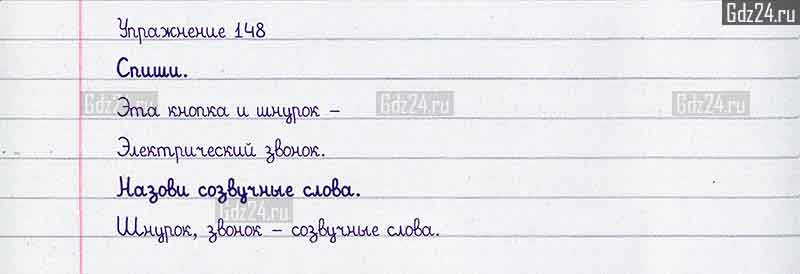 Gdz24.ru
Упражнение 148
Спиши.
Gdz24.ru Gdz24.ru Gdz24.ru
Эта кнопка и шнурок –
Электрический звонок.
Назови созвучные слова.
Gdz24.ru
Шнурок, звонок – созвучные слова.